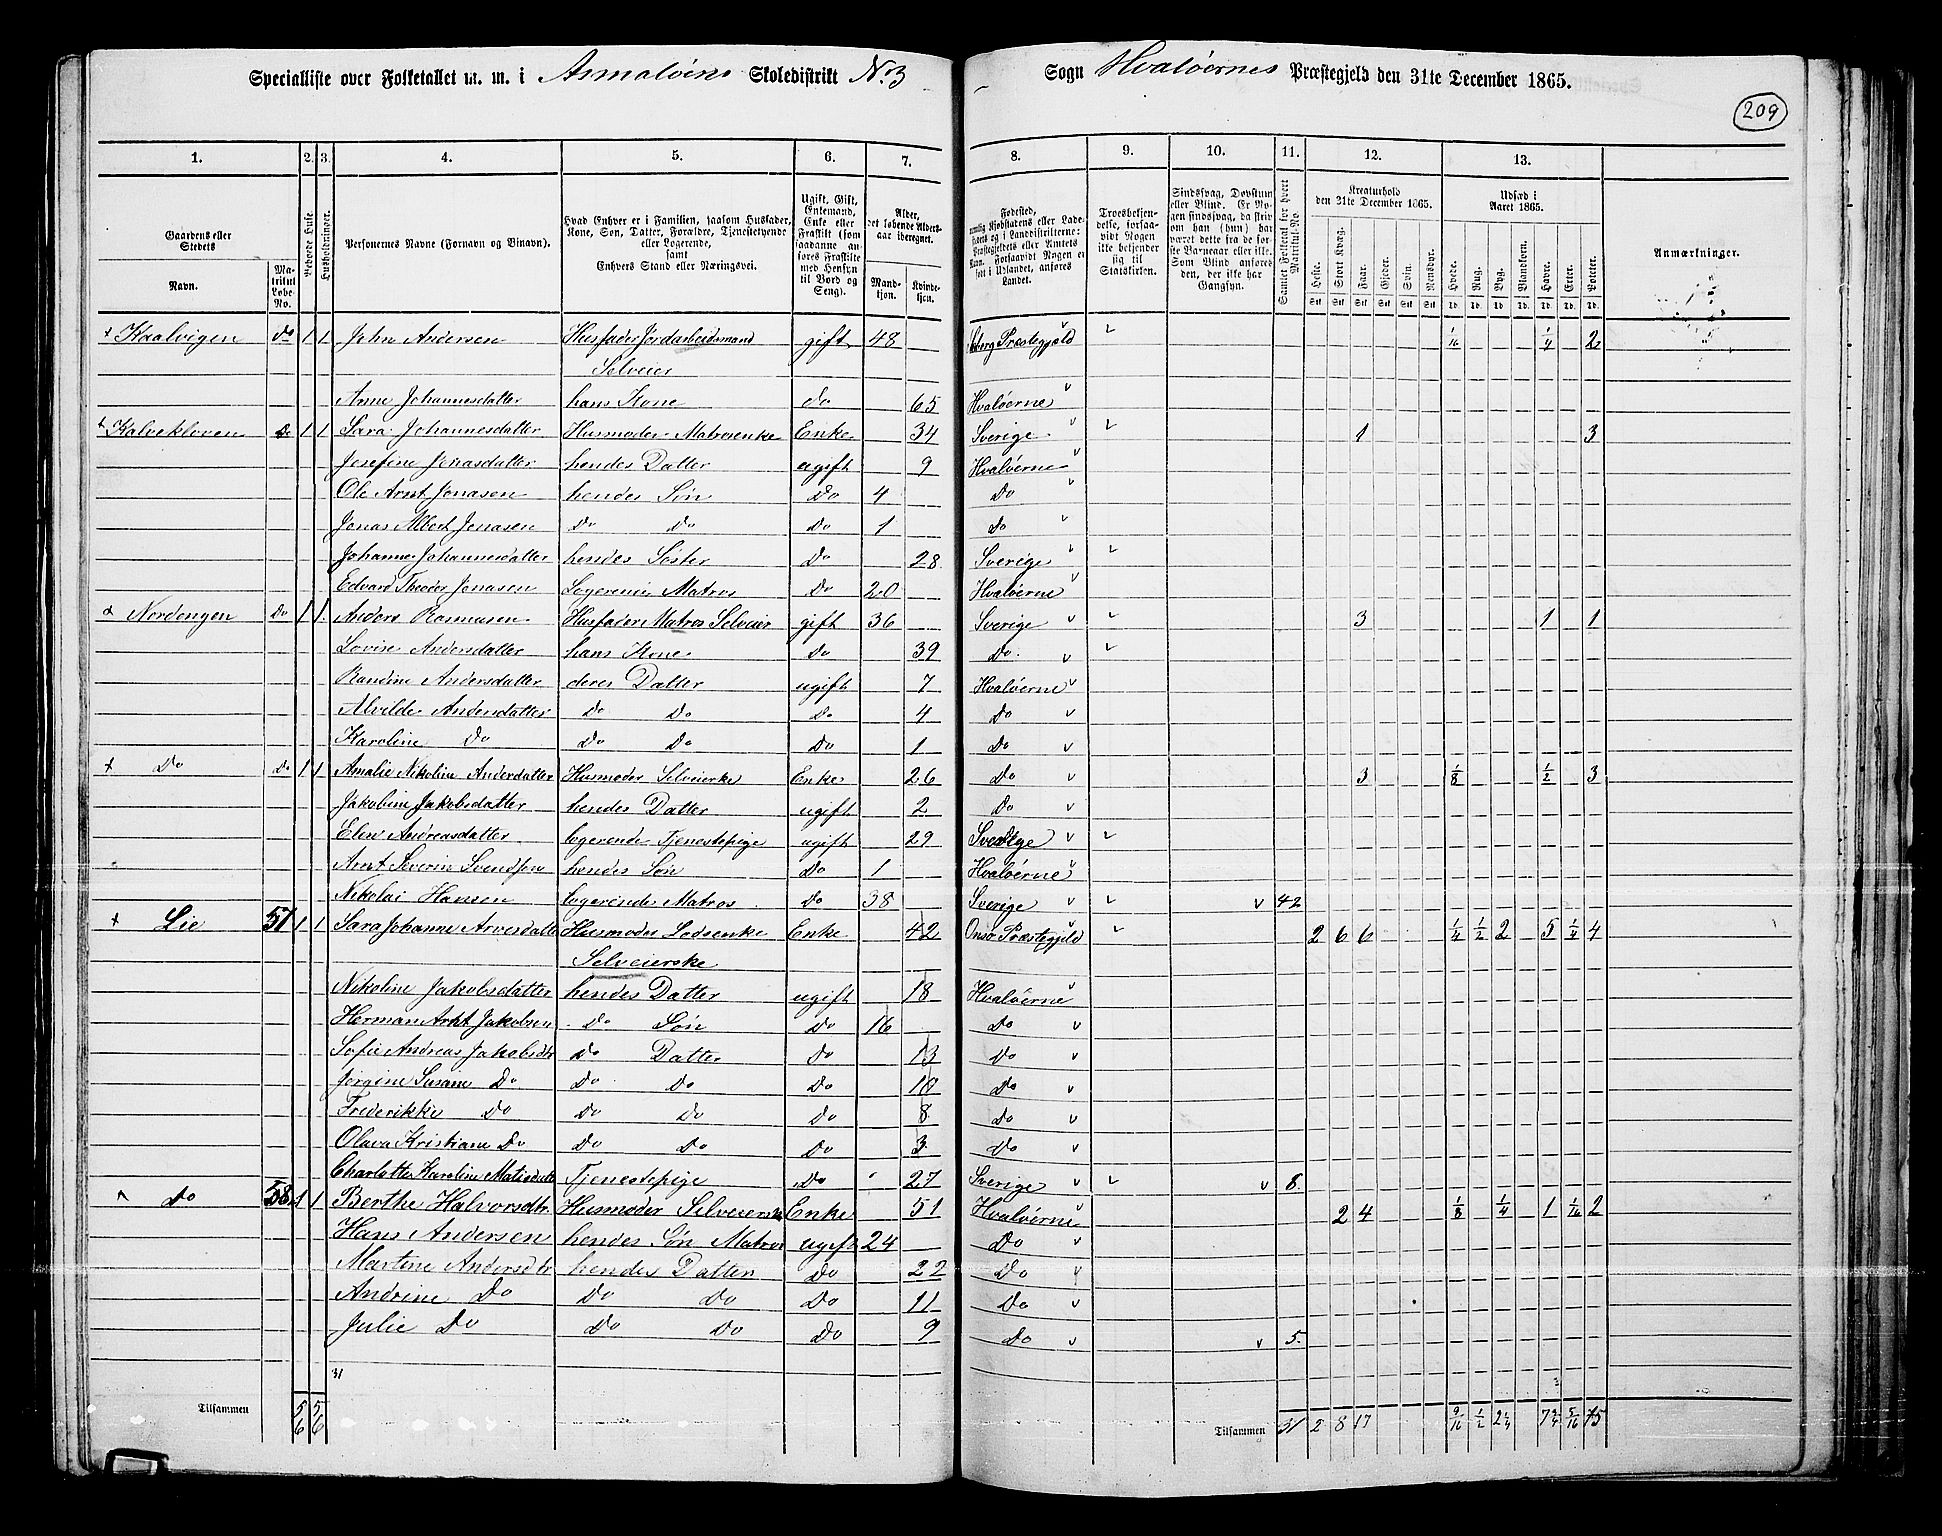 Specialliste over Folketallet m. m. i Asmaløens Skoledistrikt No 3
Sogn Hvaløernes Præstegjeld den 31te December 1865.
209
1. 2. 3. 4. 5. 6. 7. 8. 9. 10. 11. 12. 13.
Gaardens eller Stedets
Navn.
Matrikul Løbe-No.
Beboede Huse.
Husholdninger.
Personernes Navne (Fornavn og Tilnavn).
Hvad Enhver er i Familien, saasom Husfader, Kone, Søn, Datter, Forældre, Tjenestetyende eller Logerende, samt Enhvers Stand eller Næringsvei.
Ugift, Gift, Enkemand, Enke eller Fraskilt (som saadanne anføres Fraskilte med Hensyn til Bord og Seng).
Alder, det løbende Alders-aar iberegnet.
Mandkjøn. Kvindekjøn.
Fødested,
Troesbekjendelse, forsaavidt Nogen ikke bekjender sig til Statskirken.
Sindssvag, Døvstum eller Blind.
Samlet Folketal for hvert Matrikul-No.
Kreaturhold den 31te December 1865.
Heste. Stort Kvæg. Faar. Gjeder. Svin. Rensdyr.
Udsæd i Aaret 1865.
Hvede. Rug. Byg. Blandkorn. Havre. Erter. Poteter.
Anmærkninger.
+ Kaalvigen do 1 1 John Andersen Husfader Jordarbeidsmand gift 48 Præstegjeld 1/16 1/4 2
Selveier
Anne Johannesdatter hans Kone do 65 Hvaløerne
+ Kalvekloven Do 1 1 Sara Johannesdatter Husmoder Matrosenke Enke 34 Sverige 1 3
Josefine Jonasdatter hendes Datter ugift 9 Hvaløerne
Ole Arnt Jonasen hendes Søn Do 4 Do
Jonas Albert Jonasen Do Do Do 1 Do
Johanne Johannesdatter hendes Søster Do 28 Sverige
Edvard Theodor Jonasen Logerende Matros Do 20 Hvaløerne
Nordengen Do 1 1 Anders Rasmusen Husfader Matros Selveier gift 36 Sverige 3 1 1
Lovise Andersdatter hans Kone Do 39 Do
Randine Andersdatter deres Datter ugift 7 Hvaløerne
Alvilde Andersdatter Do Do Do 4 Do
Karoline Do Do Do Do 1 Do
+ Do Do 1 1 Amalie Nikoline Andersdatter Husmoder Selveierske Enke 26 Do 3 1/8 1/2 3
Jakobine Jakobsdatter hendes Datter ugift 2 Do
Elen Andreasdatter logerende Tjenestepige ugift 29 Sverige
Arnt Severin Svendsen hendes Søn Do 1 Hvaløerne
Nikolai Hansen logerende Matros Do 38 Sverige 42
+ Lie 57 1 1 Sara Johanne Arvesdatter Husmoder Lodsenke Enke 42 Onsø Præstegjeld 2 6 6 1/4 1/2 2 5 1/4 4
Selveierske
Nikoline Jakobsdatter hendes Datter ugift 18 Hvaløerne
Herman Arnt Jakobsen Do Søn Do 16 Do
Sofie Andreas Jakobsdtr Do Datter Do 13 Do
Jørgine Susane Do Do Do Do 10 Do
Frederikke Do Do Do Do 8 Do
Olava Kristiane Do Do Do Do 3 Do
Charlotte Karoline Tjenestepige Do 27 Sverige 8
Do 58 1 1 Berthe Halvorsdtr. Husmoder Selveierske Enke 51 Hvaløerne 2 4 1/8 1/4 1 1/16 2
Hans Andersen hendes Søn Matros ugift 24 Do
Martine Andersdtr hendes Datter Do 22 Do
Andrine Do Do Do Do 11 Do
Julie Do Do Do Do 9 Do 5
31
Tilsammen 5/6 5/6
Tilsammen 31 2 8 17 9/16 1/2 2 1/4 7 3/4 5/16 15